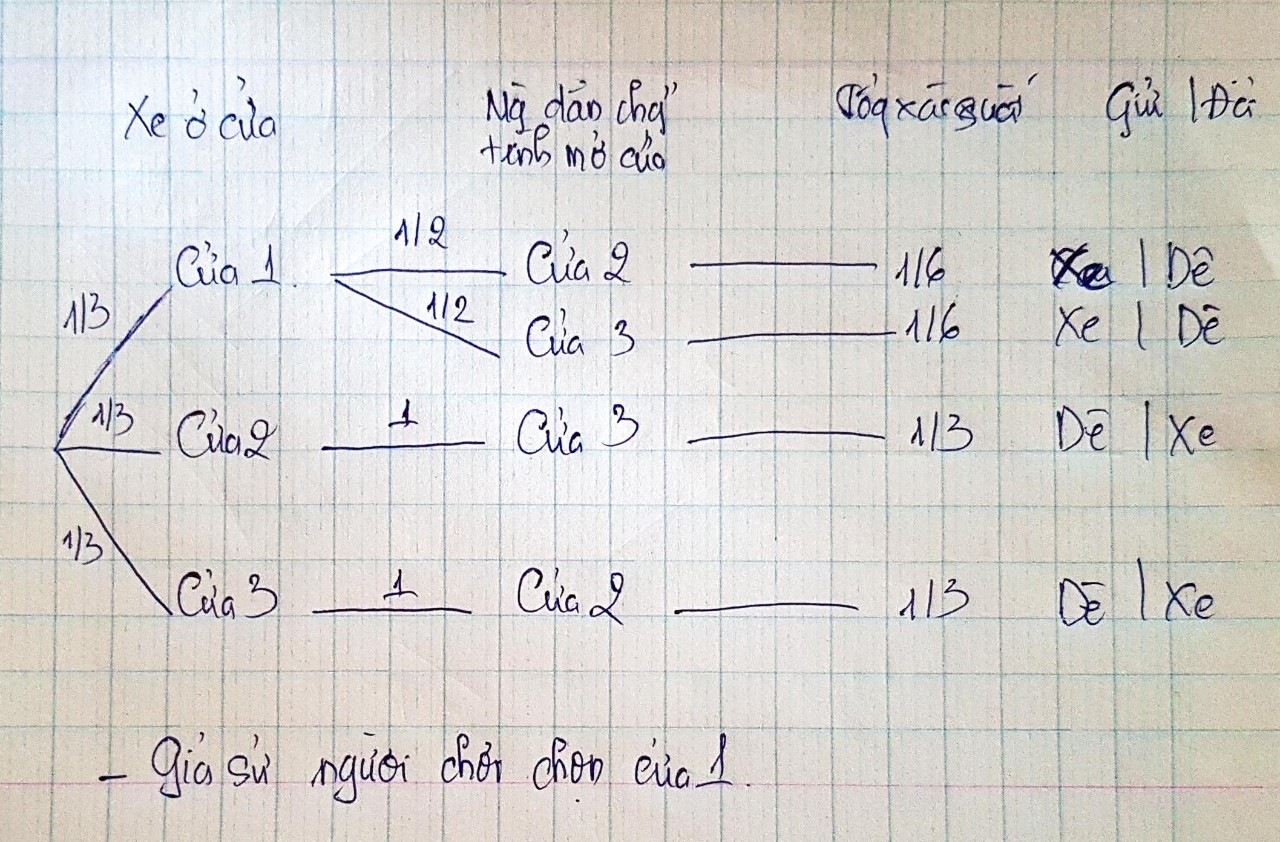 Xe ở cửa
Ng dẫn chg
trình mở cửa
Tổg xác suất
Giữ | Đổi
1/3
Cửa 1
1/2
Cửa 2
1/6
Xe | Dê
1/2
Cửa 3
1/6
Xe | Dê
1/3
Cửa 2
1
Cửa 3
1/3
Dê | Xe
1/3
Cửa 3
1
Cửa 2
1/3
Dê | Xe
- Giả sử người chơi chọn cửa 1.